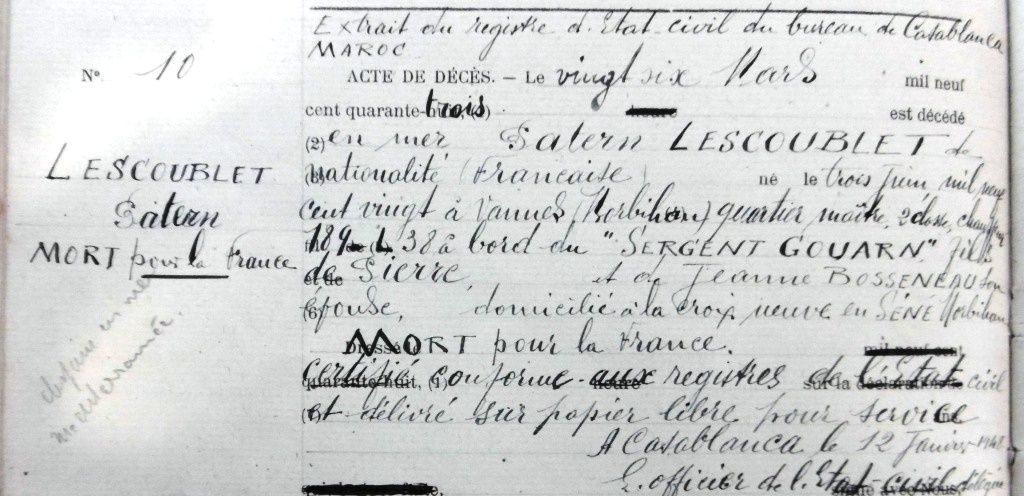 Extrait du registre d'Etat civil du bureau de Casablanca
MAROC
N° 10
ACTE DE DÉCÈS. – Le vingt six Mars mil neuf
cent quarante-trois est décédé
(2) en mer Patern LESCOUBLET de
nationalité (Francaise) né le trois juin mil neuf
cent vingt à Vannes (Morbihan) quartier maître, 2 classe,
189 L 38 à bord du "SERGENT GOUARN". fils
de Pierre, et de Jeanne BOSSENEAU son
épouse, domicilié à la croix neuve en SÉNÉ Morbihan
MORT pour la France.
certifié conforme aux registres de l'Etat civil
et délivré sur papier libre pour service
A Casablanca le 12 Janvier 1948
L'officier de l'Etat-civil délégué
LESCOUBLET
Patern
MORT pour la France
disparu en mer
méditerranée.